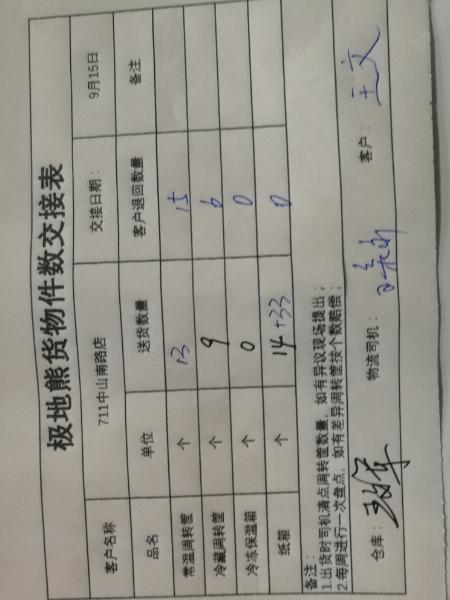 极地熊货物件数交接表
客户名称 711中山南路店 交接日期： 9月15日
品名 单位 送货数量 客户退回数量 备注
常温周转筐 个 13 15
冷藏周转筐 个 9 6
冷冻保温箱 个 0 0
纸箱 个 14+33 0
备注：
1.出货时司机清点周转筐数量，如有异议现场提出；
2.每周进行一次盘点，如有差异周转筐按个数赔偿；
仓库： 物流司机： 客户： 王文